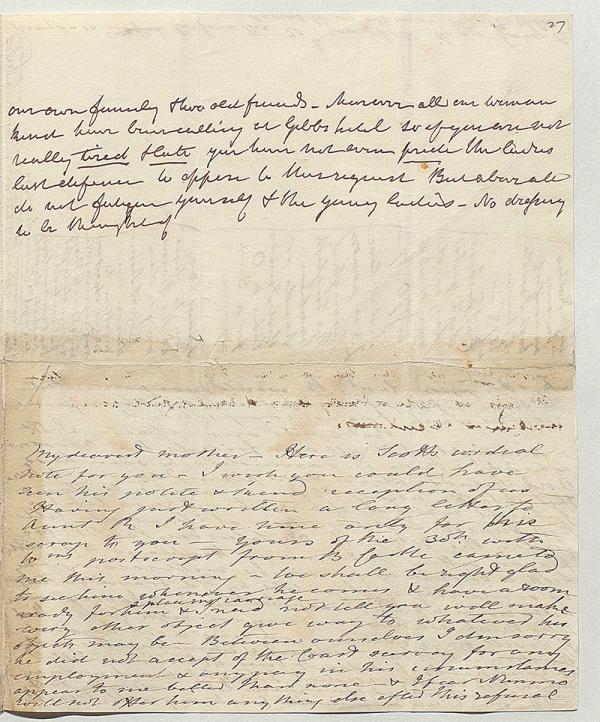 27
our own family & two old friends - Moreover all our woman
kind have been calling at Gibbs hotel so if you are not
really tired & late you have not even pride the ladies
last defence to oppose to this request But above all
do not fatigue yourself & the young ladies - No dressing
to be thought of
My dearest mother - Here is Scotts cordial
note for you - I wish you could have
seen his polite & kind reception of us
Having just written a long letter to
Aunt R I have time only for this
scrap to you - yours of the 30th with
postscript from B Castle came to
me this morning - We shall be right glad
to see him whenever he comes & have a room
& place in carriage
ready for him & I need not tell you will make
every other object give way to whatever his
objects may be Between ourselves I am sorry
he did not accept of the Coast survey for any
employment & any pay in his circumstances
appear to me better than none & I fear Nimmo
will not offer him any thing else after this refusal